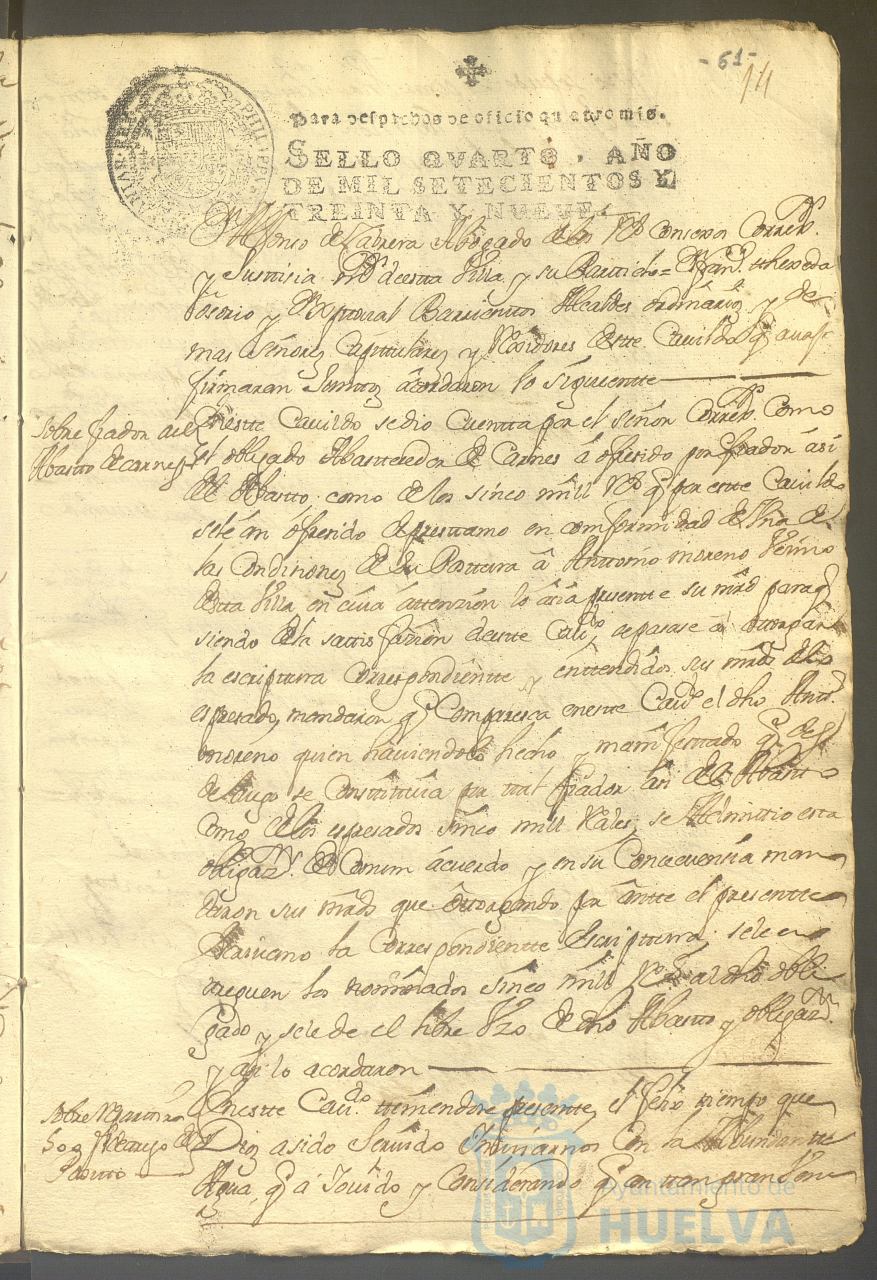 - 61 -
14
PHILIPPVS
HISPANIAR. REX
Para despachos de oficio quatro mrs.
SELLO QVARTO, AÑO
DE MIL SETECIENTOS Y
TREINTA Y NUEVE.
Alfonso de Cabrera Abogado de los Rs Consexos Correxr.
y Justisia mr. de esta Villa, y su Partido = Dn Franco. thexeda
Osorio y Dn Xptoval Barrientos Alcaldes ordinarios y de
mas Señores Capitulares y Rexidores de este Cavildo q avajo
firmaran Juntos acordaron lo siguientte
Sobre fiador del
Abasto de carnes
En estte Cavildo se dio Cuentta por el señor Correxr. Como
el obligado Abastecedor de Carnes á ofresido por fiador asi
del Abastto como de los sinco mill Rs q por este Cavildo
se le án ofresido de prestamo en comformidad de Vna de
las Condisiones de su Postura á Anttonio moreno Vezino
de esta Villa en cuia attenzion lo asia presentte a su mrd para q
siendo de la sattisfazion de este Cavdo, se pasase a ottorgar
la escriptura Correspondientte y enttendidos sus mrds de lo
espresado, mandaron q Comparesca en este Cavdo el dho Antto.
moreno quien haviendolo hecho y manifesttado q desde
luego se Constituia por tal fiador asi del Abasto
Como de los espresados sinco mill Reales, se Admittio esta
obligazn. de Comun acuerdo y en su Concecuensia man
daron sus mrds que ottorgando por antte el presentte
Escrivano la Correspondientte Escripttura se le en
treguen los nominados sinco mill Rs al dho obli
gado y se le de el libre Vzo de dho Abasto y obligazn.
y asi lo acordaron
En estte Cavdo. tteniendose presente, el feliz tiempo que
Dios a sido Servido Imviarnos Con la Abundantte
Agua q á llovido y Considerando q an ttan gran
Ayuntamiento de
HUELVA